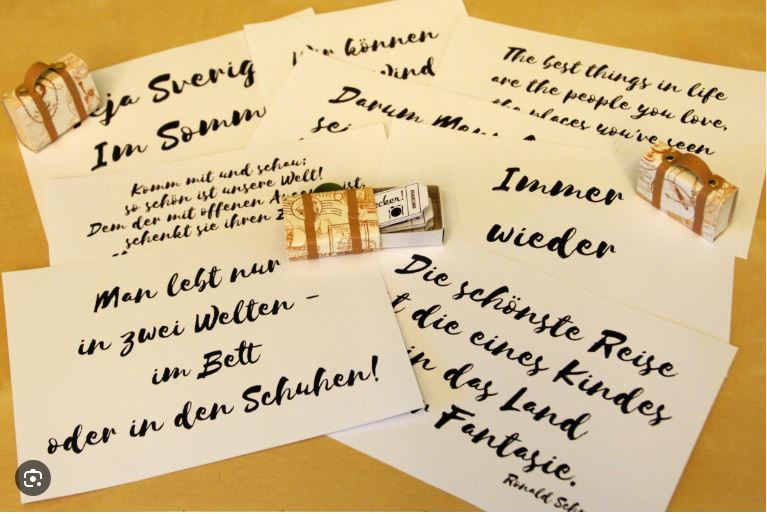 Heja Sverig
Im Somm
Wir können
The best things in life
are the people you love,
the places you've seen
Darum
sei
Komm mit und schau;
so schön ist unsere Welt!
Dem der mit offenen Augen ist,
schenkt sie ihren
Immer
wieder
ecker!
Man lebt nur
in zwei Welten –
im Bett
oder in den Schuhen!
Die schönste Reise
die eines Kindes
in das Land
Fantasie.
Ronald